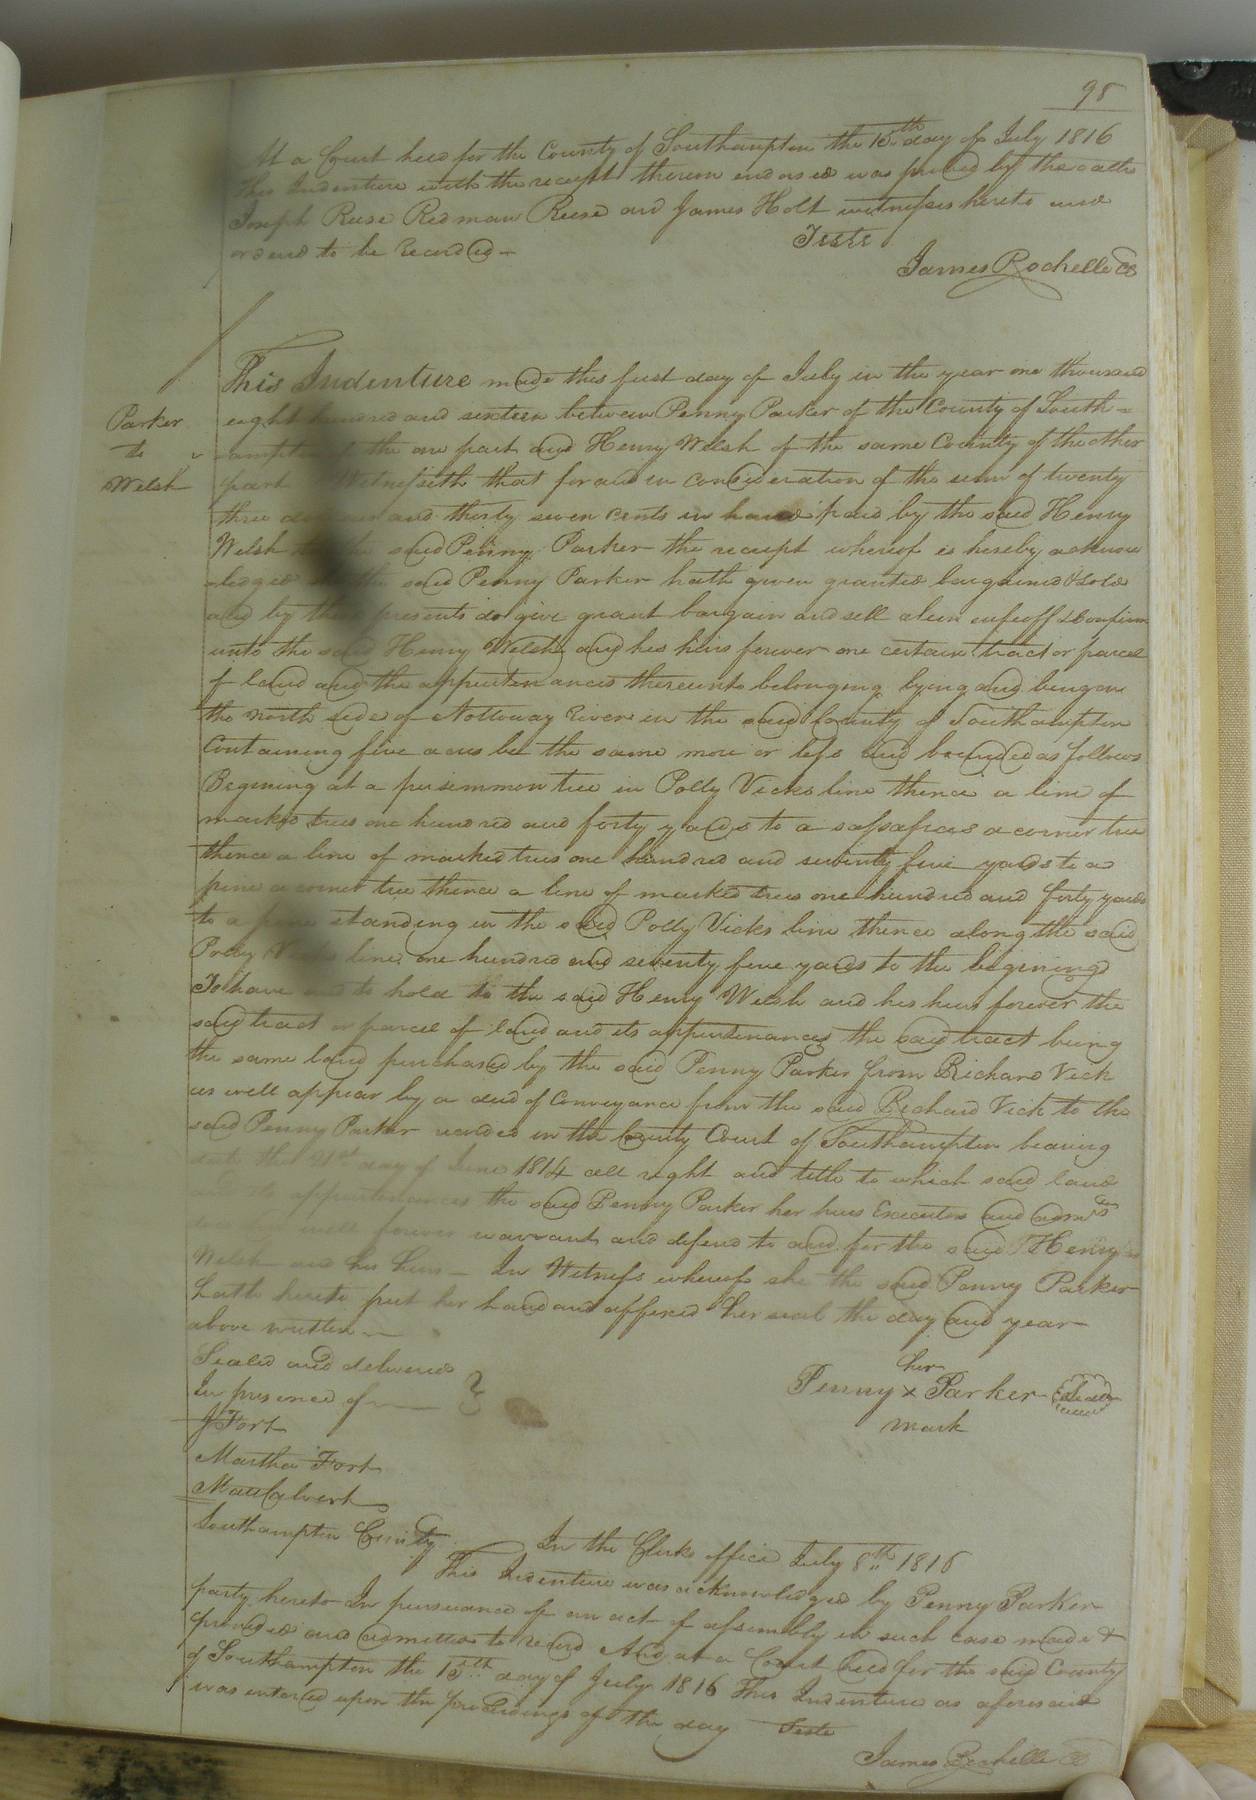 98
At a Court held for the County of Southampton the 15th day of July 1816
This Indenture with the receipt thereon endorsed was proved by the oaths
Joseph Reese Redman Reese and James Holt witnesses hereto and
ordered to be Recorded —
Teste
James Rochelle CC
This Indenture made this first day of July in the year one thousand
Parker
to
Welsh
eight hundred and sixteen between Penny Parker of the County of South =
ampton of the one part and Henry Welsh of the same County of the other
part Witnesseth that for and in consideration of the sum of twenty
three dollars and thirty seven cents in hand paid by the said Henry
Welsh to the said Penny Parker the receipt whereof is hereby acknow
ledged the said Penny Parker hath given granted bargained & sold
and by these presents do give grant bargain and sell alien enfeoff & Confirm
unto the said Henry Welsh and his heirs forever one certain tract or parcel
of land and the appurtenances thereunto belonging lying and being on
the north side of Nottoway River in the said County of Southampton
Containing five acres be the same more or less and bounded as follows
Begining at a persimmon tree in Polly Vicks line thence a line of
marked trees one hundred and forty yards to a sassafras a corner tree
thence a line of marked trees one hundred and seventy five yards to a
pine a corner tree thence a line of marked trees one hundred and forty yards
to a pine standing in the said Polly Vicks line thence along the said
Polly Vicks line one hundred and seventy five yards to the begining
To have and to hold to the said Henry Welsh and his heirs forever the
said tract or parcel of land and its appurtenances the said tract being
the same land purchased by the said Penny Parker from Richard Vick
as will appear by a deed of Conveyance from the said Richard Vick to the
said Penny Parker recorded in the County Court of Southampton bearing
date the 21st day of June 1814 all right and title to which said land
and its appurtenances the said Penny Parker her heirs Executors and admrs
will forever warrant and defend to and for the said Henry
Welsh and his heirs — In Witness whereof she the said Penny Parker
hath hereto put her hand and affixed her seal the day and year
above written —
Sealed and delivered
In presence of
J Fort
Martha Fort
Calvert
her
Penny x Parker Seal
mark
Southampton County
In the Clerks office July 8th 1816
This Indenture was acknowledged by Penny Parker
party hereto In pursuance of an act of assembly in such case made &
provided and admitted to record And at a Court held for the said County
of Southampton the 15th day of July 1816 This Indenture as aforesaid
was entered upon the proceedings of the day Teste
James Rochelle CC